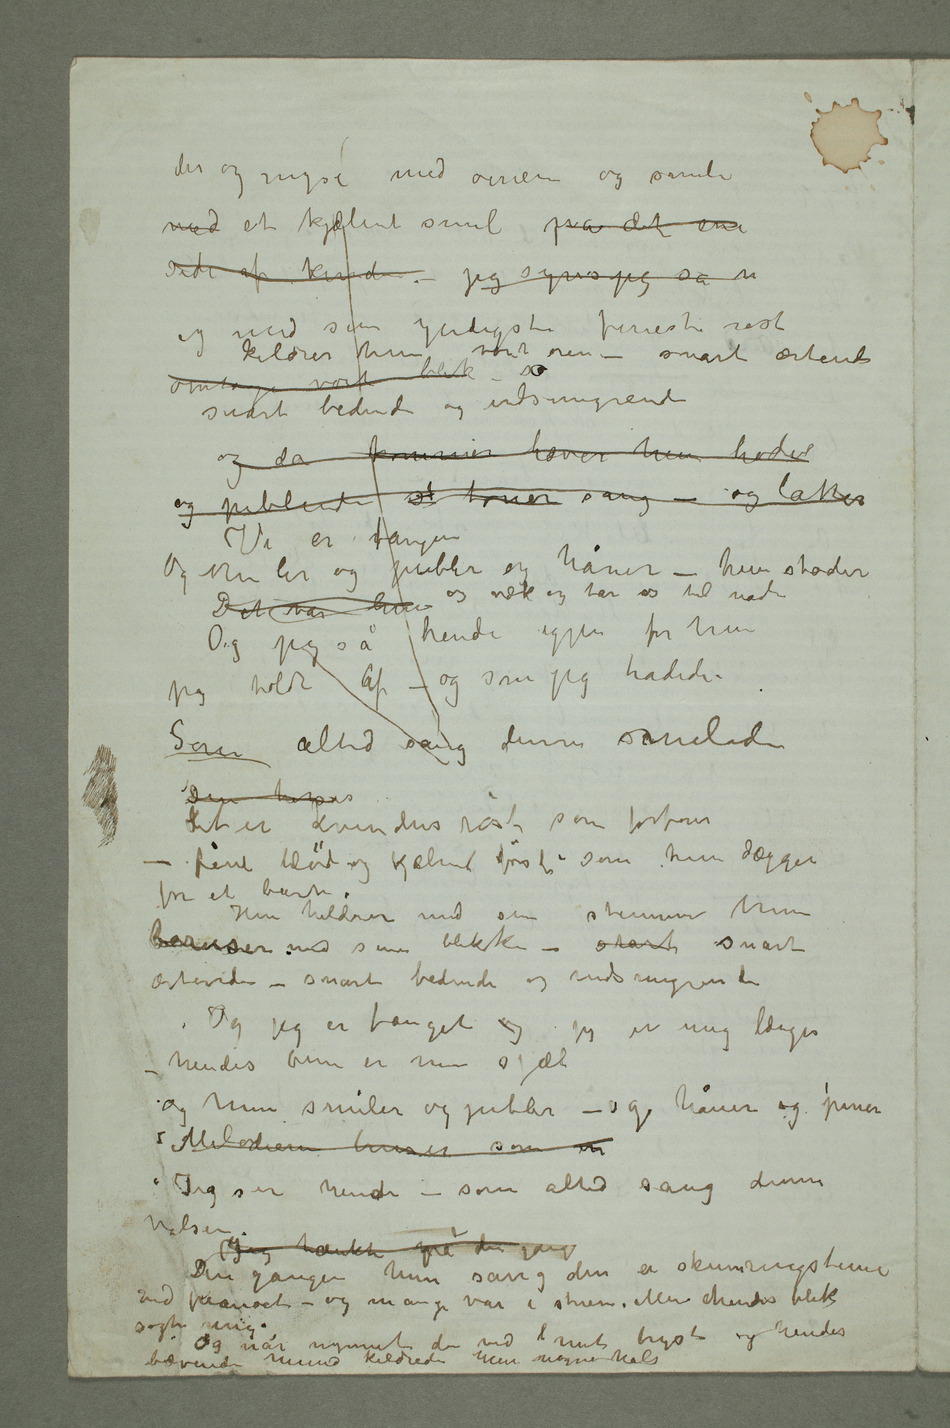 der og myse med øinene og smile
med et kjælent smil på det ene
side af kinde – jeg synes jeg så n
og med sin yndigste fineste røst
kildrer hun vort øre – snart ertende
omtåge vort blik – så
snart bedende og indsmigrende
og da kommer hæver hun hodet
og jublende et toner sang – og latter
Vi er fangen
Og hun ler og jubler og håner – hun støder
os væk og tar os til nåde
Det var hun
Og jeg så hende igjen for hun
jeg holdt af – og som jeg hadede.
Som altid sang denne smelade
Den
Det er kvindens røst som forfører
– fint blød og kjælent som hun dægger
for et barn.
Hun kildrer med sin stemme hun
beruser med sine blikke – snart snart
ertende – snart bedende og indsmigrende
Og jeg er fanget og jeg er mig længer
– hendes er min sjæl
og hun smiler og jubler – og håner og piner
Melodien bruser som en
Jeg ser hende – som altid sang denne
Valsen.
Jeg tænkte på den gang
Den gangen hun sang den en skumringstime
ved pianoet – og mange var i stuen. Men hendes blik
søgte mig.
Og når nynnet den ved mit bryst og hendes
bævende mund kildrede min hals